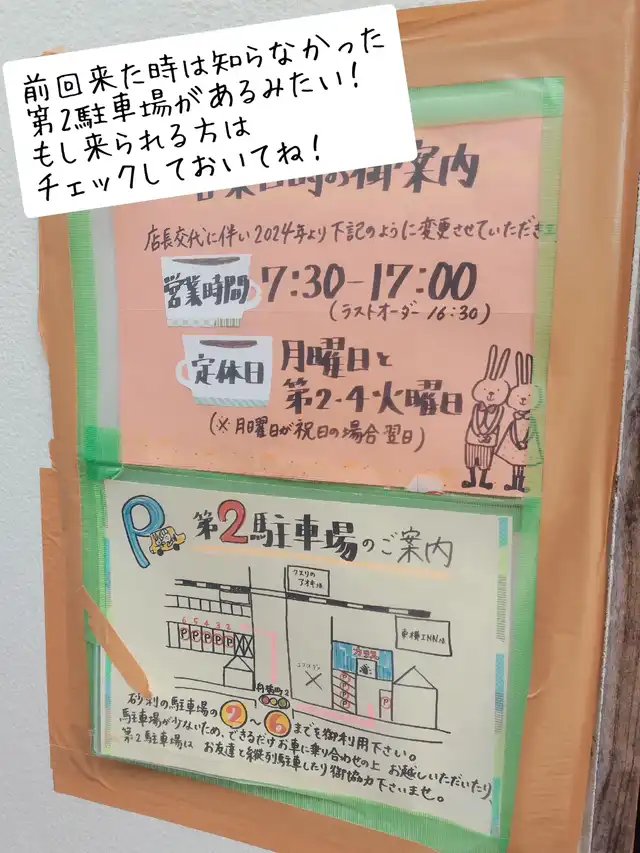 前回来た時は知らなかった
第2駐車場があるみたい!
もし来られる方は
チェックしておいてね!
御案内
店長交代に伴い2024年より下記のように変更させていただき
営業時間 7:30-17:00
(ラストオーダー 16:30)
定休日 月曜日と
第2・4火曜日
(※月曜日が祝日の場合翌日)
P 第2駐車場のご案内
クスリの
アオキ様
東横INN様
6 5 4 3 2
P P P P P
P
P
P
P
砂利の駐車場の②〜⑥までを御利用下さい。
駐車場が少ないため、できるだけお車に乗り合わせの上 お越しいただいたり
第2駐車場は お友達と縦列駐車したり御協力下さいませ。